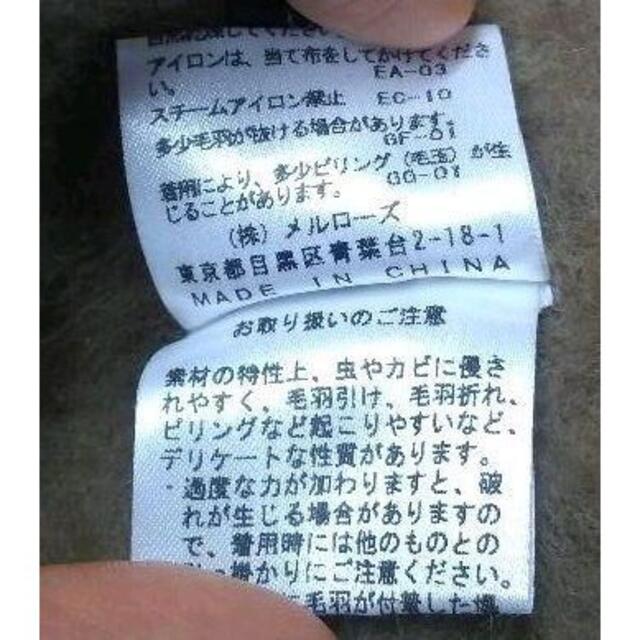 自然乾燥してください。
アイロンは、当て布をしてかけてくださ
い。 EA-03
スチームアイロン禁止 EC-10
多少毛羽が抜ける場合があります。
GF-01
着用により、多少ピリング(毛玉)が生
じることがあります。 GG-01
(株)メルローズ
東京都目黒区青葉台2-18-1
MADE IN CHINA
お取り扱いのご注意
素材の特性上、虫やカビに優さ
れやすく、毛羽引け、毛羽折れ、
ピリングなど起こりやすいなど、
デリケートな性質があります。
・過度な力が加わりますと、破
れが生じる場合がありますの
で、着用時には他のものとの
掛かりにご注意ください。
毛羽が付